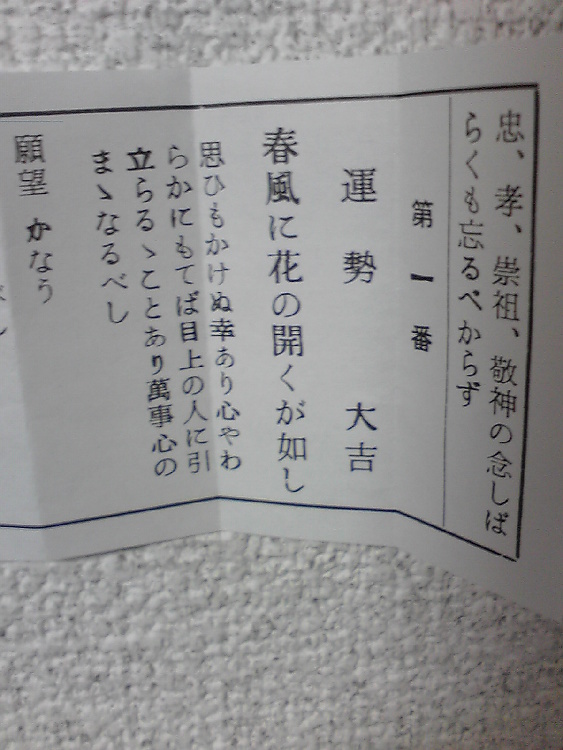 忠、孝、崇祖、敬神の念しば
らくも忘るべからず
第一番
運勢　大吉
春風に花の開くが如し
思ひもかけぬ幸あり心やわ
らかにもてば目上の人に引
立らるゝことあり萬事心の
まゝなるべし
願望 かなう